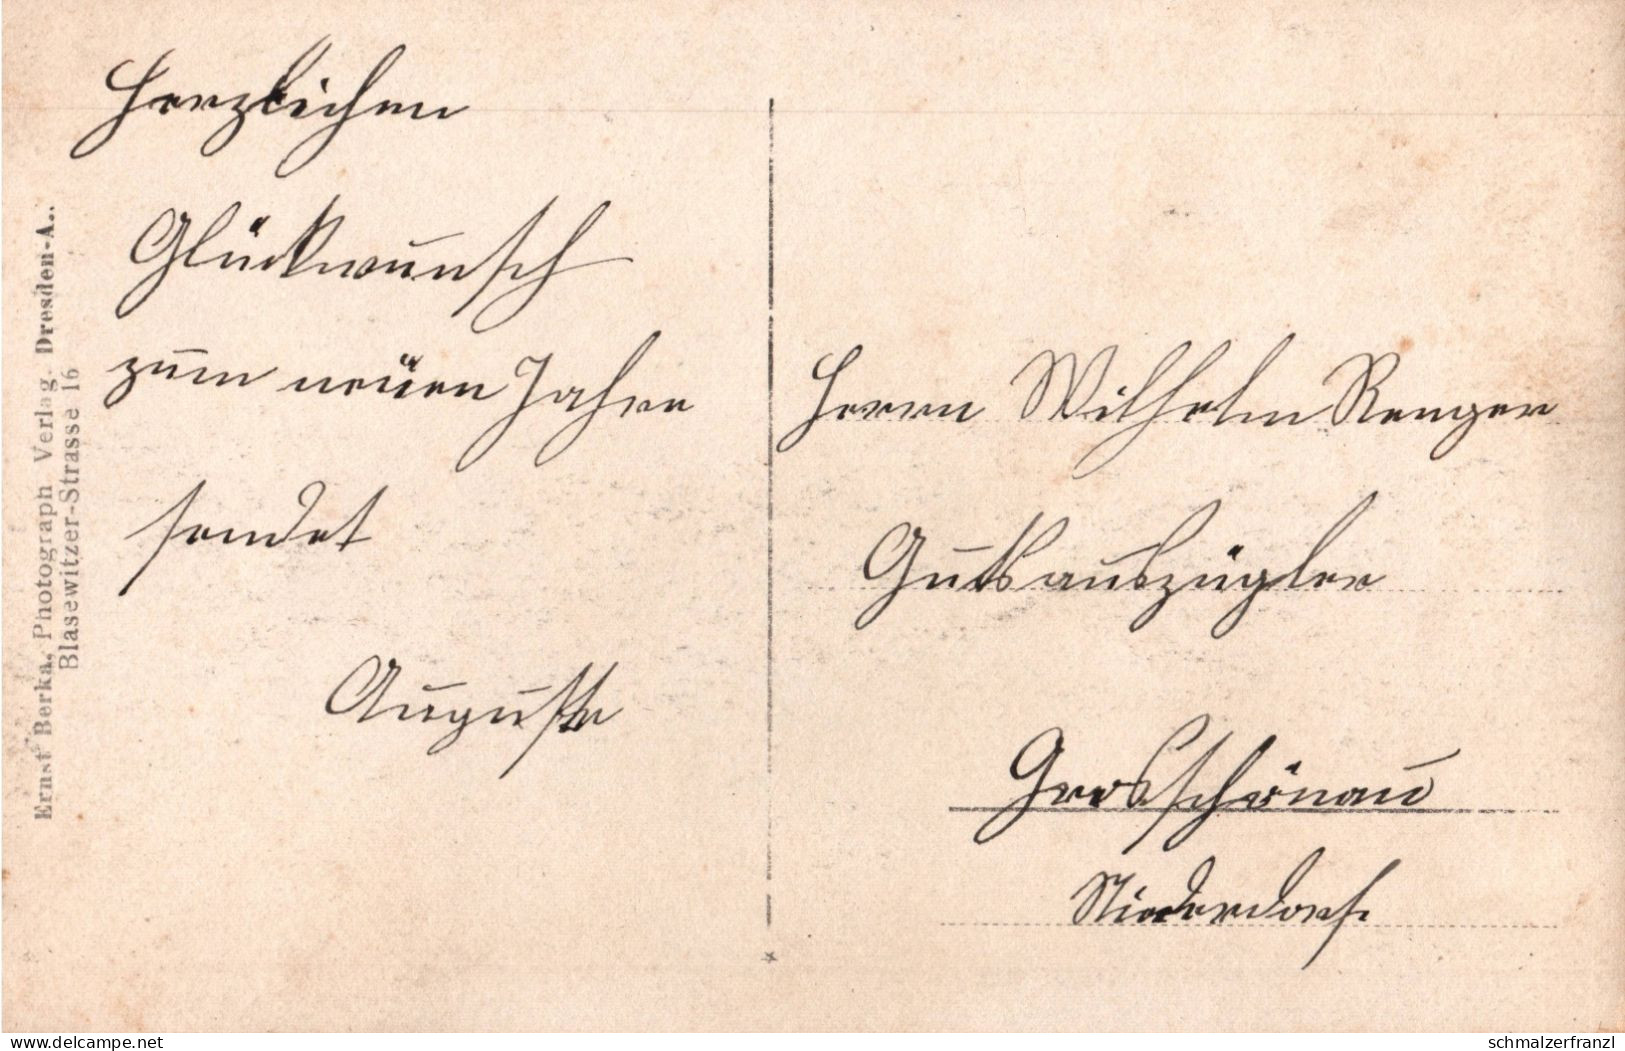 Herzlichen
Glückwunsch
zum neuen Jahre
sendet
Auguste
Herrn Wilhelm Renger
Gutsauszügler
Grosschönau
Niederdorf.
Ernst Berka, Photograph Verlag. Dresden-A..
Blasewitzer-Strasse 16
www.delcampe.net
schmalzerfranzl